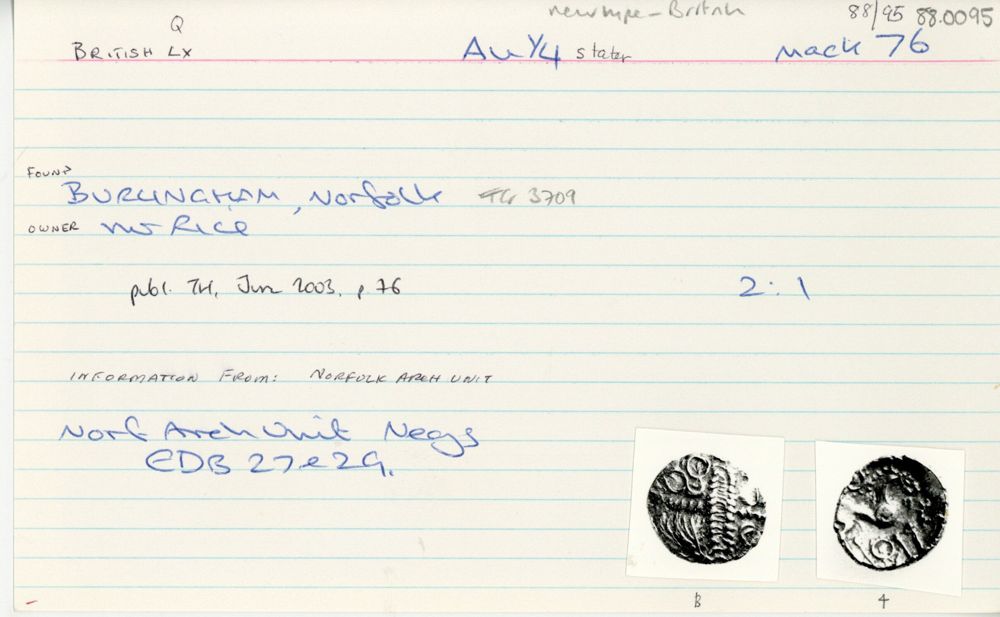 new type - British 88/95 88.0095
Q
BRITISH LX Au 1/4 stater Mack 76
FOUND
BURLINGHAM, Norfolk TG 3709
OWNER Mr Rice
publ. TH, June 2003, p. 76 2:1
INFORMATION FROM: NORFOLK ARCH UNIT
Norf Arch Unit Negs
EDB 27 e 29.
B 4